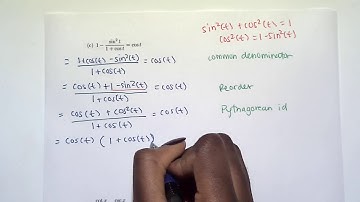 sin²(t) + cos²(t) = 1
cos²(t) = 1 - sin²(t)
(c) 1 - sin² t / 1 + cos t = cos t
= 1 + cos(t) - sin²(t) / 1 + cos(t) = cos(t) common denominator
= cos(t) + 1 - sin²(t) / 1 + cos(t) = cos(t) Reorder
= cos(t) + cos²(t) / 1 + cos(t) = cos(t) Pythagorean id
= cos(t) (1 + cos(t))